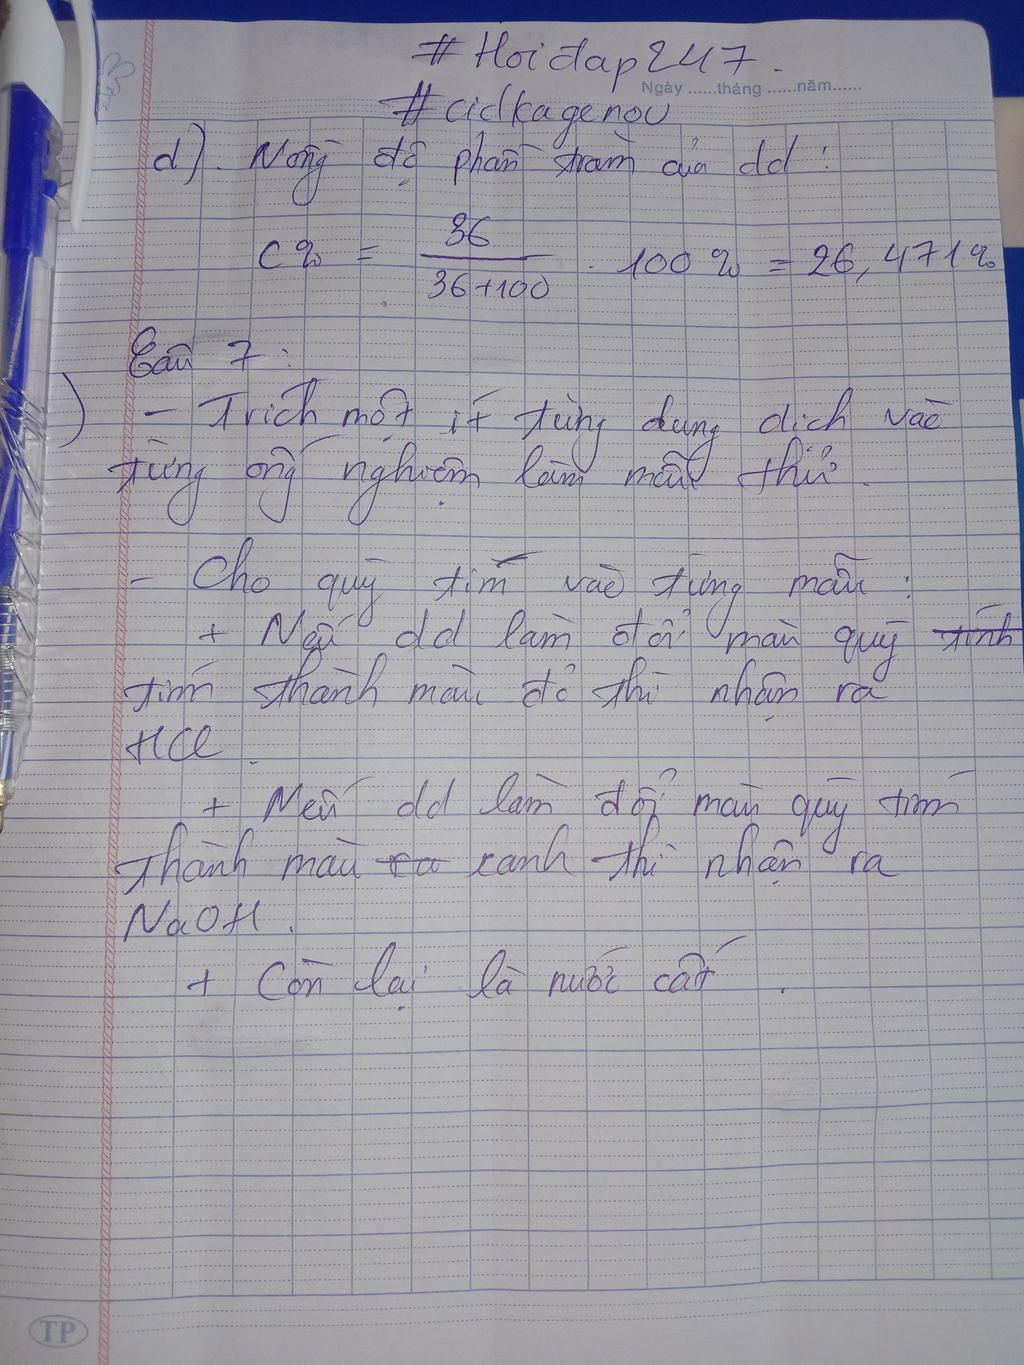 #Hoidap247.
Ngày ......tháng ......năm......
#cidkagenou
d). Nồng độ phần trăm của dd:
C% = 36 / 36+100 . 100% = 26,471%
Câu 7:
) - Trích một ít từng dung dịch vào
từng ống nghiệm làm mẫu thử.
- Cho quỳ tím vào từng mẫu:
+ Nếu dd làm đổi màu quỳ tính
tím thành màu đỏ thì nhận ra
HCl.
+ Nếu dd làm đổi màu quỳ tím
thành màu ra xanh thì nhận ra
NaOH.
+ Còn lại là nước cất.
TP